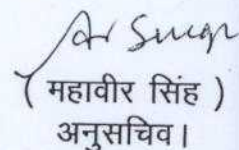 ( महावीर सिंह )
अनुसचिव।